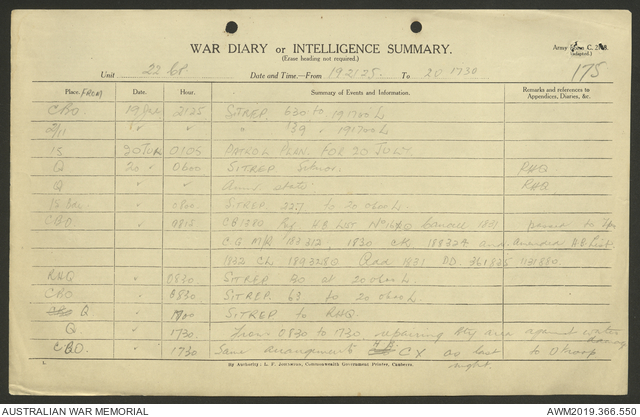 WAR DIARY or INTELLIGENCE SUMMARY.
(Erase heading not required.)
Army Form C.
(adapted.)
175
Unit 22 Date and Time.—From 192125. To 20 1730
Place. FROM Date. Hour. Summary of Events and Information. Remarks and references to Appendices, Diaries, &c.
CBO 19 2125 SITREP 630 to 191700 L
2/11 " 139 " 191700 L
15 20 JULY 0105 PATROL PLAN. FOR 20 JULY.
Q 20 0600 SITREP RHQ
Q state. RHQ
0800 SITREP. 227 to 20 0600 L.
CBO 0812 CB 1380 HB List No cancel 1831 passed to
CG M/R 183312, 1830 CK and Amended H.B. List.
1832 CL 1893280 Add 1831 DD. 361835 1131880.
RHQ 0830 SITREP 90 at 20 0600 L.
CBO 0830 SITREP 63 to 20 0600 L.
Q 1700 SITREP to RHQ.
Q 1730. From 0830 to 1730 repairing Bty area against water
CBO. 1730 Same arrangement CX as last to D troop
night.
1.
By Authority: L. F. Johnston, Commonwealth Government Printer, Canberra.
AUSTRALIAN WAR MEMORIAL
AWM2019.366.550